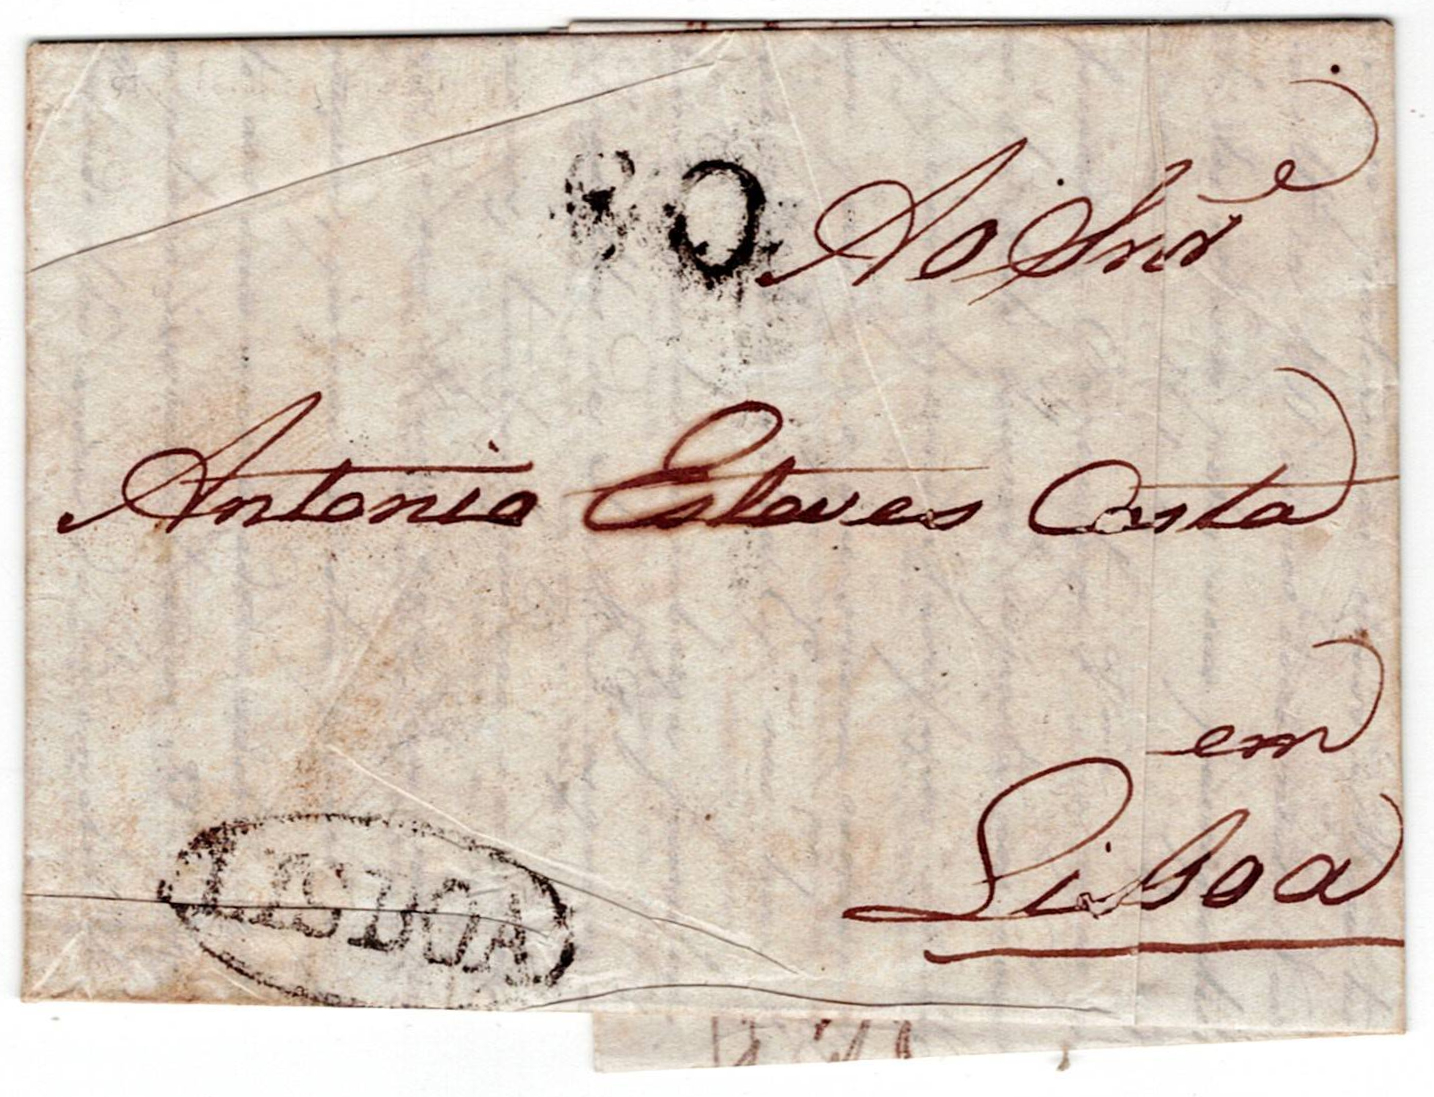 Ao Snr.e
Antonio Esteves Costa
em
Lisboa
LISBOA